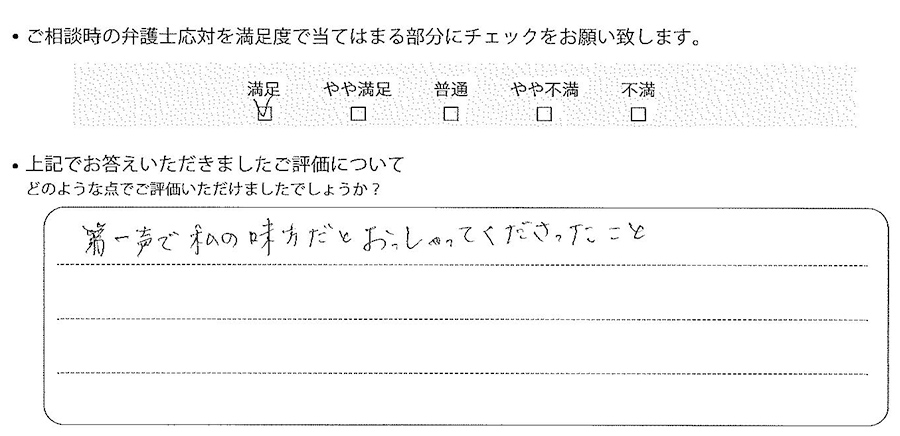 ・ご相談時の弁護士応対を満足度で当てはまる部分にチェックをお願い致します。
満足 やや満足 普通 やや不満 不満
・上記でお答えいただきましたご評価について
どのような点でご評価いただけましたでしょうか？
第一声で私の味方だとおっしゃってくださったこと